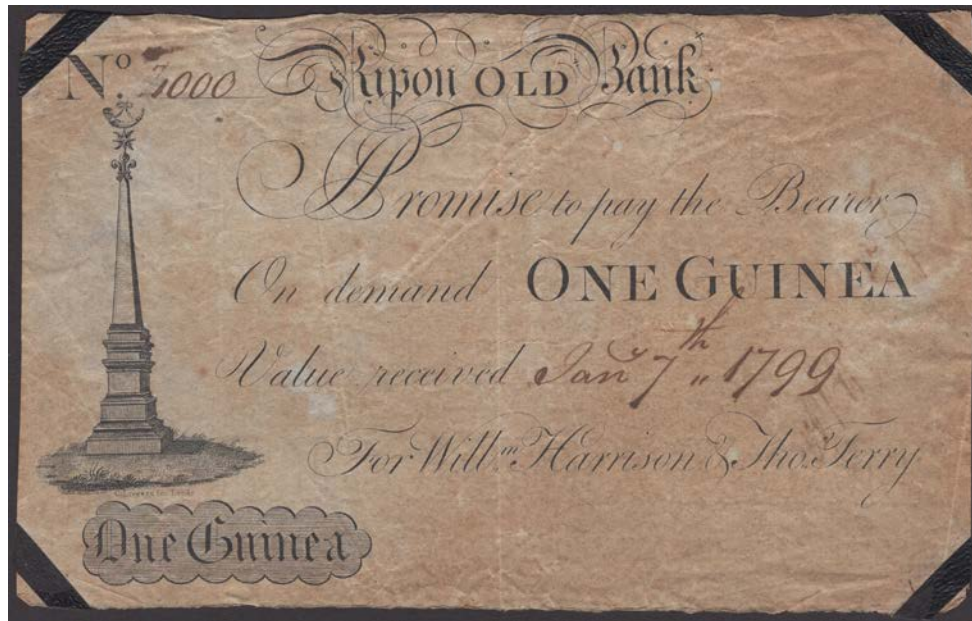 No. 4000 Ripon OLD Bank
Promise to pay the Bearer
On demand ONE GUINEA
Value received Jany 7th 1799
For Willm Harrison & Tho. Terry
One Guinea